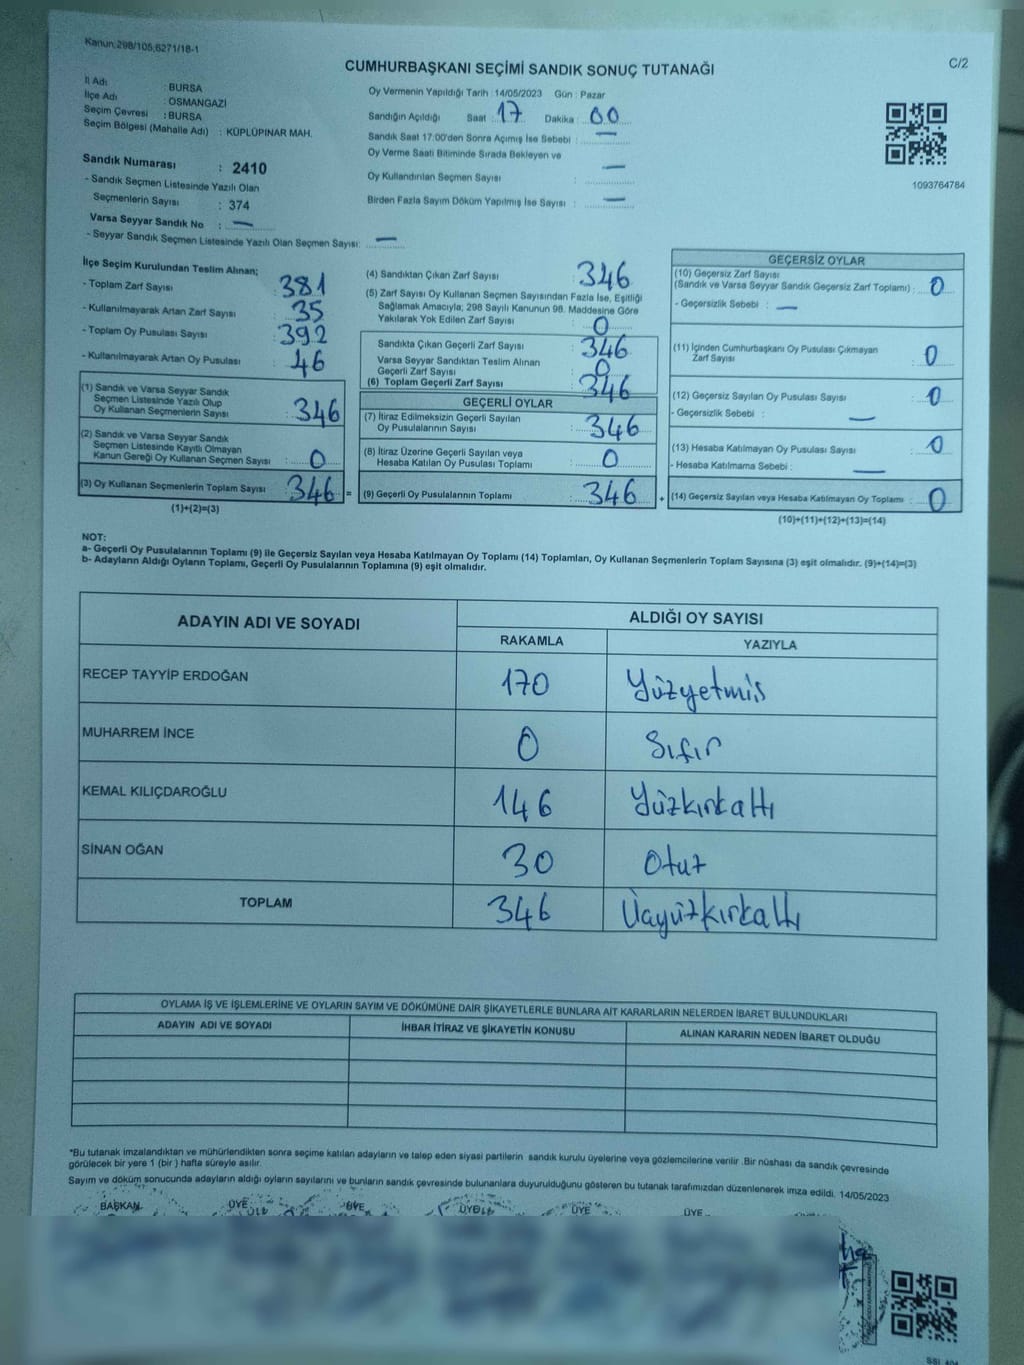 Kanun:298/105,6271/18-1
C/2
CUMHURBAŞKANI SEÇİMİ SANDIK SONUÇ TUTANAĞI
İl Adı : BURSA
İlçe Adı : OSMANGAZİ
Seçim Çevresi : BURSA
Seçim Bölgesi (Mahalle Adı) : KÜPLÜPINAR MAH.
Oy Vermenin Yapıldığı Tarih : 14/05/2023 Gün : Pazar
Sandığın Açıldığı Saat : 17 Dakika : 00
Sandık Saat 17:00'den Sonra Açımış İse Sebebi : —
Oy Verme Saati Bitiminde Sırada Bekleyen ve
Oy Kullandırılan Seçmen Sayısı : —
Birden Fazla Sayım Döküm Yapılmış İse Sayısı : —
1093764784
Sandık Numarası : 2410
- Sandık Seçmen Listesinde Yazılı Olan
Seçmenlerin Sayısı : 374
Varsa Seyyar Sandık No : —
- Seyyar Sandık Seçmen Listesinde Yazılı Olan Seçmen Sayısı: —
İlçe Seçim Kurulundan Teslim Alınan;
- Toplam Zarf Sayısı : 381
- Kullanılmayarak Artan Zarf Sayısı : 35
- Toplam Oy Pusulası Sayısı : 392
- Kullanılmayarak Artan Oy Pusulası : 46
(1) Sandık ve Varsa Seyyar Sandık
Seçmen Listesinde Yazılı Olup
Oy Kullanan Seçmenlerin Sayısı : 346
(2) Sandık ve Varsa Seyyar Sandık
Seçmen Listesinde Kayıtlı Olmayan
Kanun Gereği Oy Kullanan Seçmen Sayısı : 0
(3) Oy Kullanan Seçmenlerin Toplam Sayısı : 346 =
(1)+(2)=(3)
(4) Sandıktan Çıkan Zarf Sayısı : 346
(5) Zarf Sayısı Oy Kullanan Seçmen Sayısından Fazla İse, Eşitliği
Sağlamak Amacıyla, 298 Sayılı Kanunun 98. Maddesine Göre
Yakılarak Yok Edilen Zarf Sayısı : 0
Sandıkta Çıkan Geçerli Zarf Sayısı : 346
Varsa Seyyar Sandıktan Teslim Alınan
Geçerli Zarf Sayısı : 0
(6) Toplam Geçerli Zarf Sayısı : 346
GEÇERLİ OYLAR
(7) İtiraz Edilmeksizin Geçerli Sayılan
Oy Pusulalarının Sayısı : 346
(8) İtiraz Üzerine Geçerli Sayılan veya
Hesaba Katılan Oy Pusulası Toplamı : 0
(9) Geçerli Oy Pusulalarının Toplamı : 346 +
GEÇERSİZ OYLAR
(10) Geçersiz Zarf Sayısı
(Sandık ve Varsa Seyyar Sandık Geçersiz Zarf Toplamı) : 0
- Geçersizlik Sebebi : —
(11) İçinden Cumhurbaşkanı Oy Pusulası Çıkmayan
Zarf Sayısı : 0
(12) Geçersiz Sayılan Oy Pusulası Sayısı : 0
- Geçersizlik Sebebi : —
(13) Hesaba Katılmayan Oy Pusulası Sayısı : 0
- Hesaba Katılmama Sebebi : —
(14) Geçersiz Sayılan veya Hesaba Katılmayan Oy Toplamı : 0
(10)+(11)+(12)+(13)=(14)
NOT:
a- Geçerli Oy Pusulalarının Toplamı (9) ile Geçersiz Sayılan veya Hesaba Katılmayan Oy Toplamı (14) Toplamları, Oy Kullanan Seçmenlerin Toplam Sayısına (3) eşit olmalıdır. (9)+(14)=(3)
b- Adayların Aldığı Oyların Toplamı, Geçerli Oy Pusulalarının Toplamına (9) eşit olmalıdır.
ADAYIN ADI VE SOYADI
ALDIĞI OY SAYISI
RAKAMLA YAZIYLA
RECEP TAYYİP ERDOĞAN 170 Yüzyetmiş
MUHARREM İNCE 0 Sıfır
KEMAL KILIÇDAROĞLU 146 Yüzkırkaltı
SİNAN OĞAN 30 Otuz
TOPLAM 346 Üçyüzkırkaltı
OYLAMA İŞ VE İŞLEMLERİNE VE OYLARIN SAYIM VE DÖKÜMÜNE DAİR ŞİKAYETLERLE BUNLARA AİT KARARLARIN NELERDEN İBARET BULUNDUKLARI
ADAYIN ADI VE SOYADI İHBAR İTİRAZ VE ŞİKAYETİN KONUSU ALINAN KARARIN NEDEN İBARET OLDUĞU
*Bu tutanak imzalandıktan ve mühürlendikten sonra seçime katılan adayların ve talep eden siyasi partilerin sandık kurulu üyelerine veya gözlemcilerine verilir .Bir nüshası da sandık çevresinde
görülecek bir yere 1 (bir ) hafta süreyle asılır.
Sayım ve döküm sonucunda adayların aldığı oyların sayılarını ve bunların sandık çevresinde bulunanlara duyurulduğunu gösteren bu tutanak tarafımızdan düzenlenerek imza edildi. 14/05/2023
BAŞKAN ÜYE ÜYE ÜYE ÜYE ÜYE